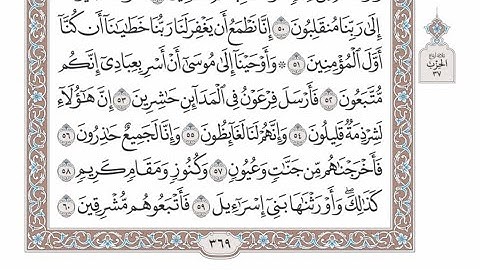 إِلَىٰ رَبِّنَا مُنقَلِبُونَ ۝٥٠ إِنَّا نَطْمَعُ أَن يَغْفِرَ لَنَا رَبُّنَا خَطَٰيَٰنَآ أَن كُنَّآ
أَوَّلَ ٱلْمُؤْمِنِينَ ۝٥١ ۞ وَأَوْحَيْنَآ إِلَىٰ مُوسَىٰٓ أَنْ أَسْرِ بِعِبَادِىٓ إِنَّكُم
مُّتَّبَعُونَ ۝٥٢ فَأَرْسَلَ فِرْعَوْنُ فِى ٱلْمَدَآئِنِ حَٰشِرِينَ ۝٥٣ إِنَّ هَٰٓؤُلَآءِ
لَشِرْذِمَةٌ قَلِيلُونَ ۝٥٤ وَإِنَّهُمْ لَنَا لَغَآئِظُونَ ۝٥٥ وَإِنَّا لَجَمِيعٌ حَٰذِرُونَ ۝٥٦
فَأَخْرَجْنَٰهُم مِّن جَنَّٰتٍ وَعُيُونٍ ۝٥٧ وَكُنُوزٍ وَمَقَامٍ كَرِيمٍ ۝٥٨
كَذَٰلِكَۖ وَأَوْرَثْنَٰهَا بَنِىٓ إِسْرَٰٓءِيلَ ۝٥٩ فَأَتْبَعُوهُم مُّشْرِقِينَ ۝٦٠
٣٦٩
الحزب
٣٧